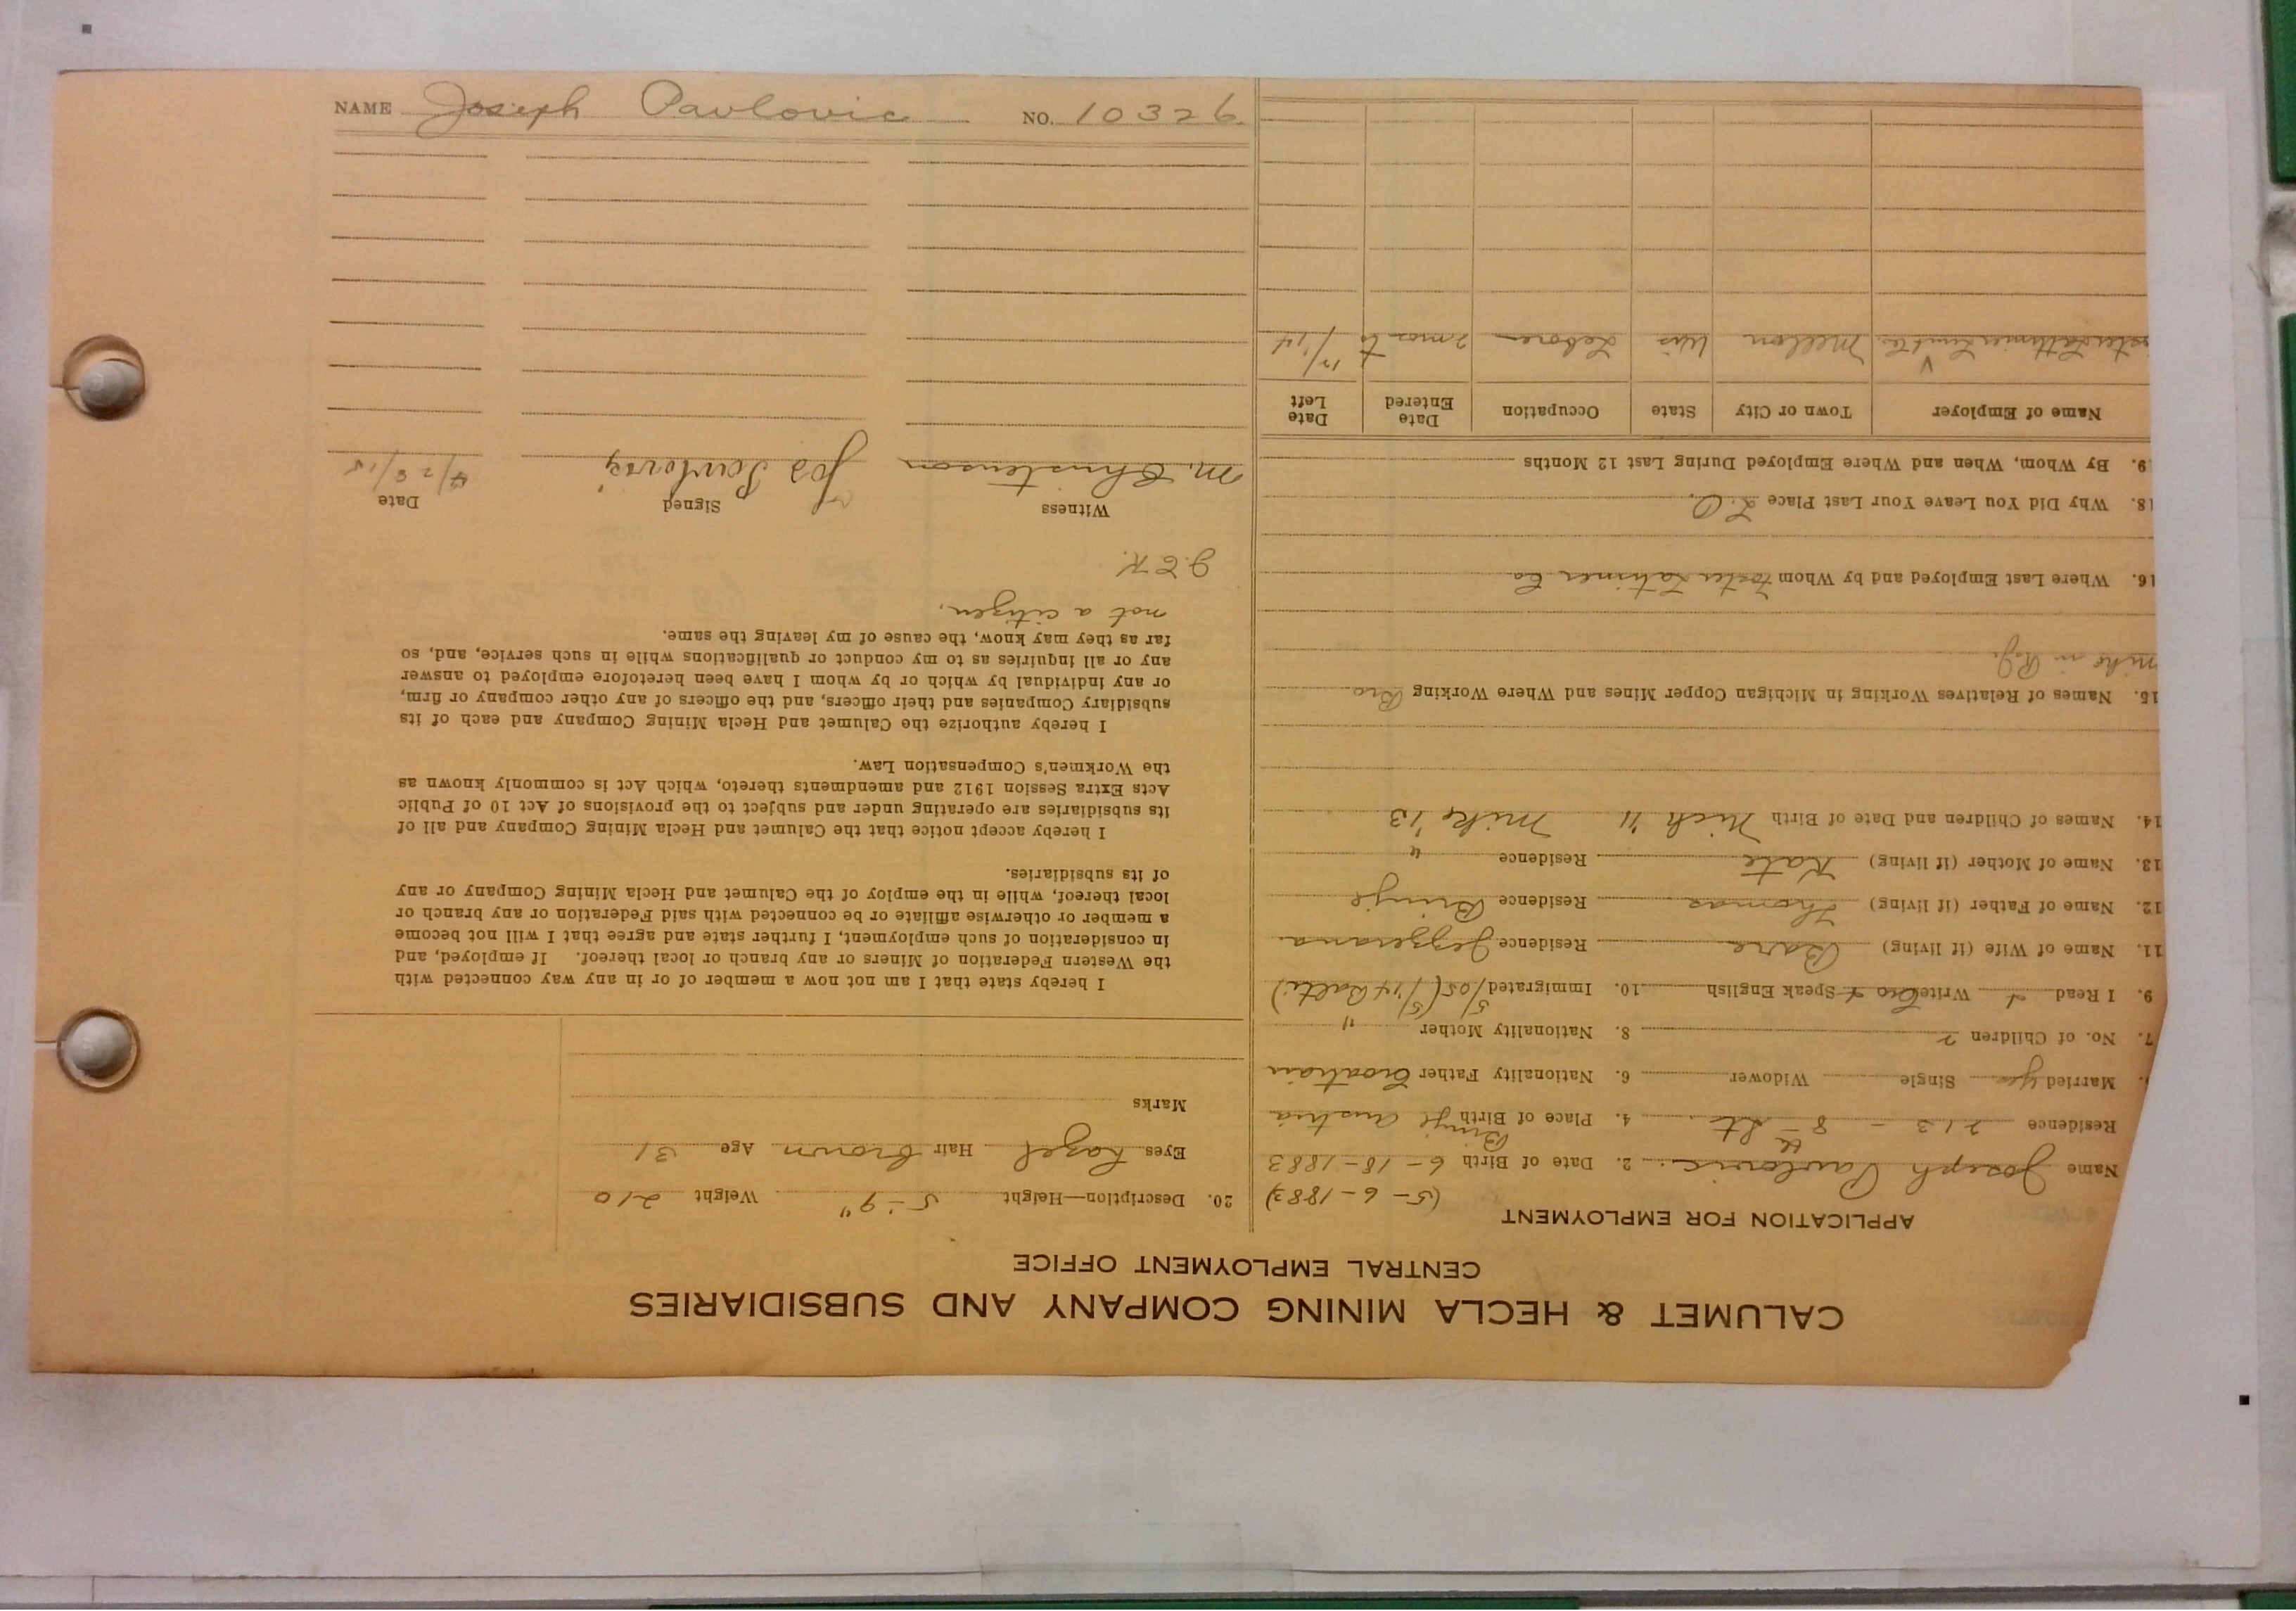 CALUMET & HECLA MINING COMPANY AND SUBSIDIARIES
CENTRAL EMPLOYMENT OFFICE
APPLICATION FOR EMPLOYMENT
(5-6-1883)
Name Joseph Pavlovic 2. Date of Birth 6-18-1883
Residence 213 - 8th St. 4. Place of Birth Brinje Austria
Married yes Single Widower 6. Nationality Father Croatian
7. No. of Children 2 8. Nationality Mother "
9. I Read Write Cro Speak English 10. Immigrated 5/05 (5/14 Balti)
11. Name of Wife (if living) Bara Residence Jezzerana
12. Name of Father (if living) Thomas Residence Brinje
13. Name of Mother (if living) Kate Residence "
14. Names of Children and Date of Birth Nich '11 Mike '13
15. Names of Relatives Working in Michigan Copper Mines and Where Working Bro
Mike in R.J.
16. Where Last Employed and by Whom Foster Latimer Co
18. Why Did You Leave Your Last Place L.O.
19. By Whom, When and Where Employed During Last 12 Months
Name of Employer Town or City State Occupation Date Entered Date Left
ster Lattimer Lumb Co. Mellon Wis Laborer 2 mos to 12/14
20. Description—Height 5-9" Weight 210
Eyes hazel Hair brown Age 31
Marks
I hereby state that I am not now a member of or in any way connected with
the Western Federation of Miners or any branch or local thereof. If employed, and
in consideration of such employment, I further state and agree that I will not become
a member or otherwise affiliate or be connected with said Federation or any branch or
local thereof, while in the employ of the Calumet and Hecla Mining Company or any
of its subsidiaries.
I hereby accept notice that the Calumet and Hecla Mining Company and all of
its subsidiaries are operating under and subject to the provisions of Act 10 of Public
Acts Extra Session 1912 and amendments thereto, which Act is commonly known as
the Workmen's Compensation Law.
I hereby authorize the Calumet and Hecla Mining Company and each of its
subsidiary Companies and their officers, and the officers of any other company or firm,
or any individual by which or by whom I have been heretofore employed to answer
any or all inquiries as to my conduct or qualifications while in such service, and, so
far as they may know, the cause of my leaving the same.
not a citizen.
J.E.K.
Witness Signed Date
M. Christenson Jos Pavlovig 4/28/15
NAME Joseph Pavlovic NO. 10326